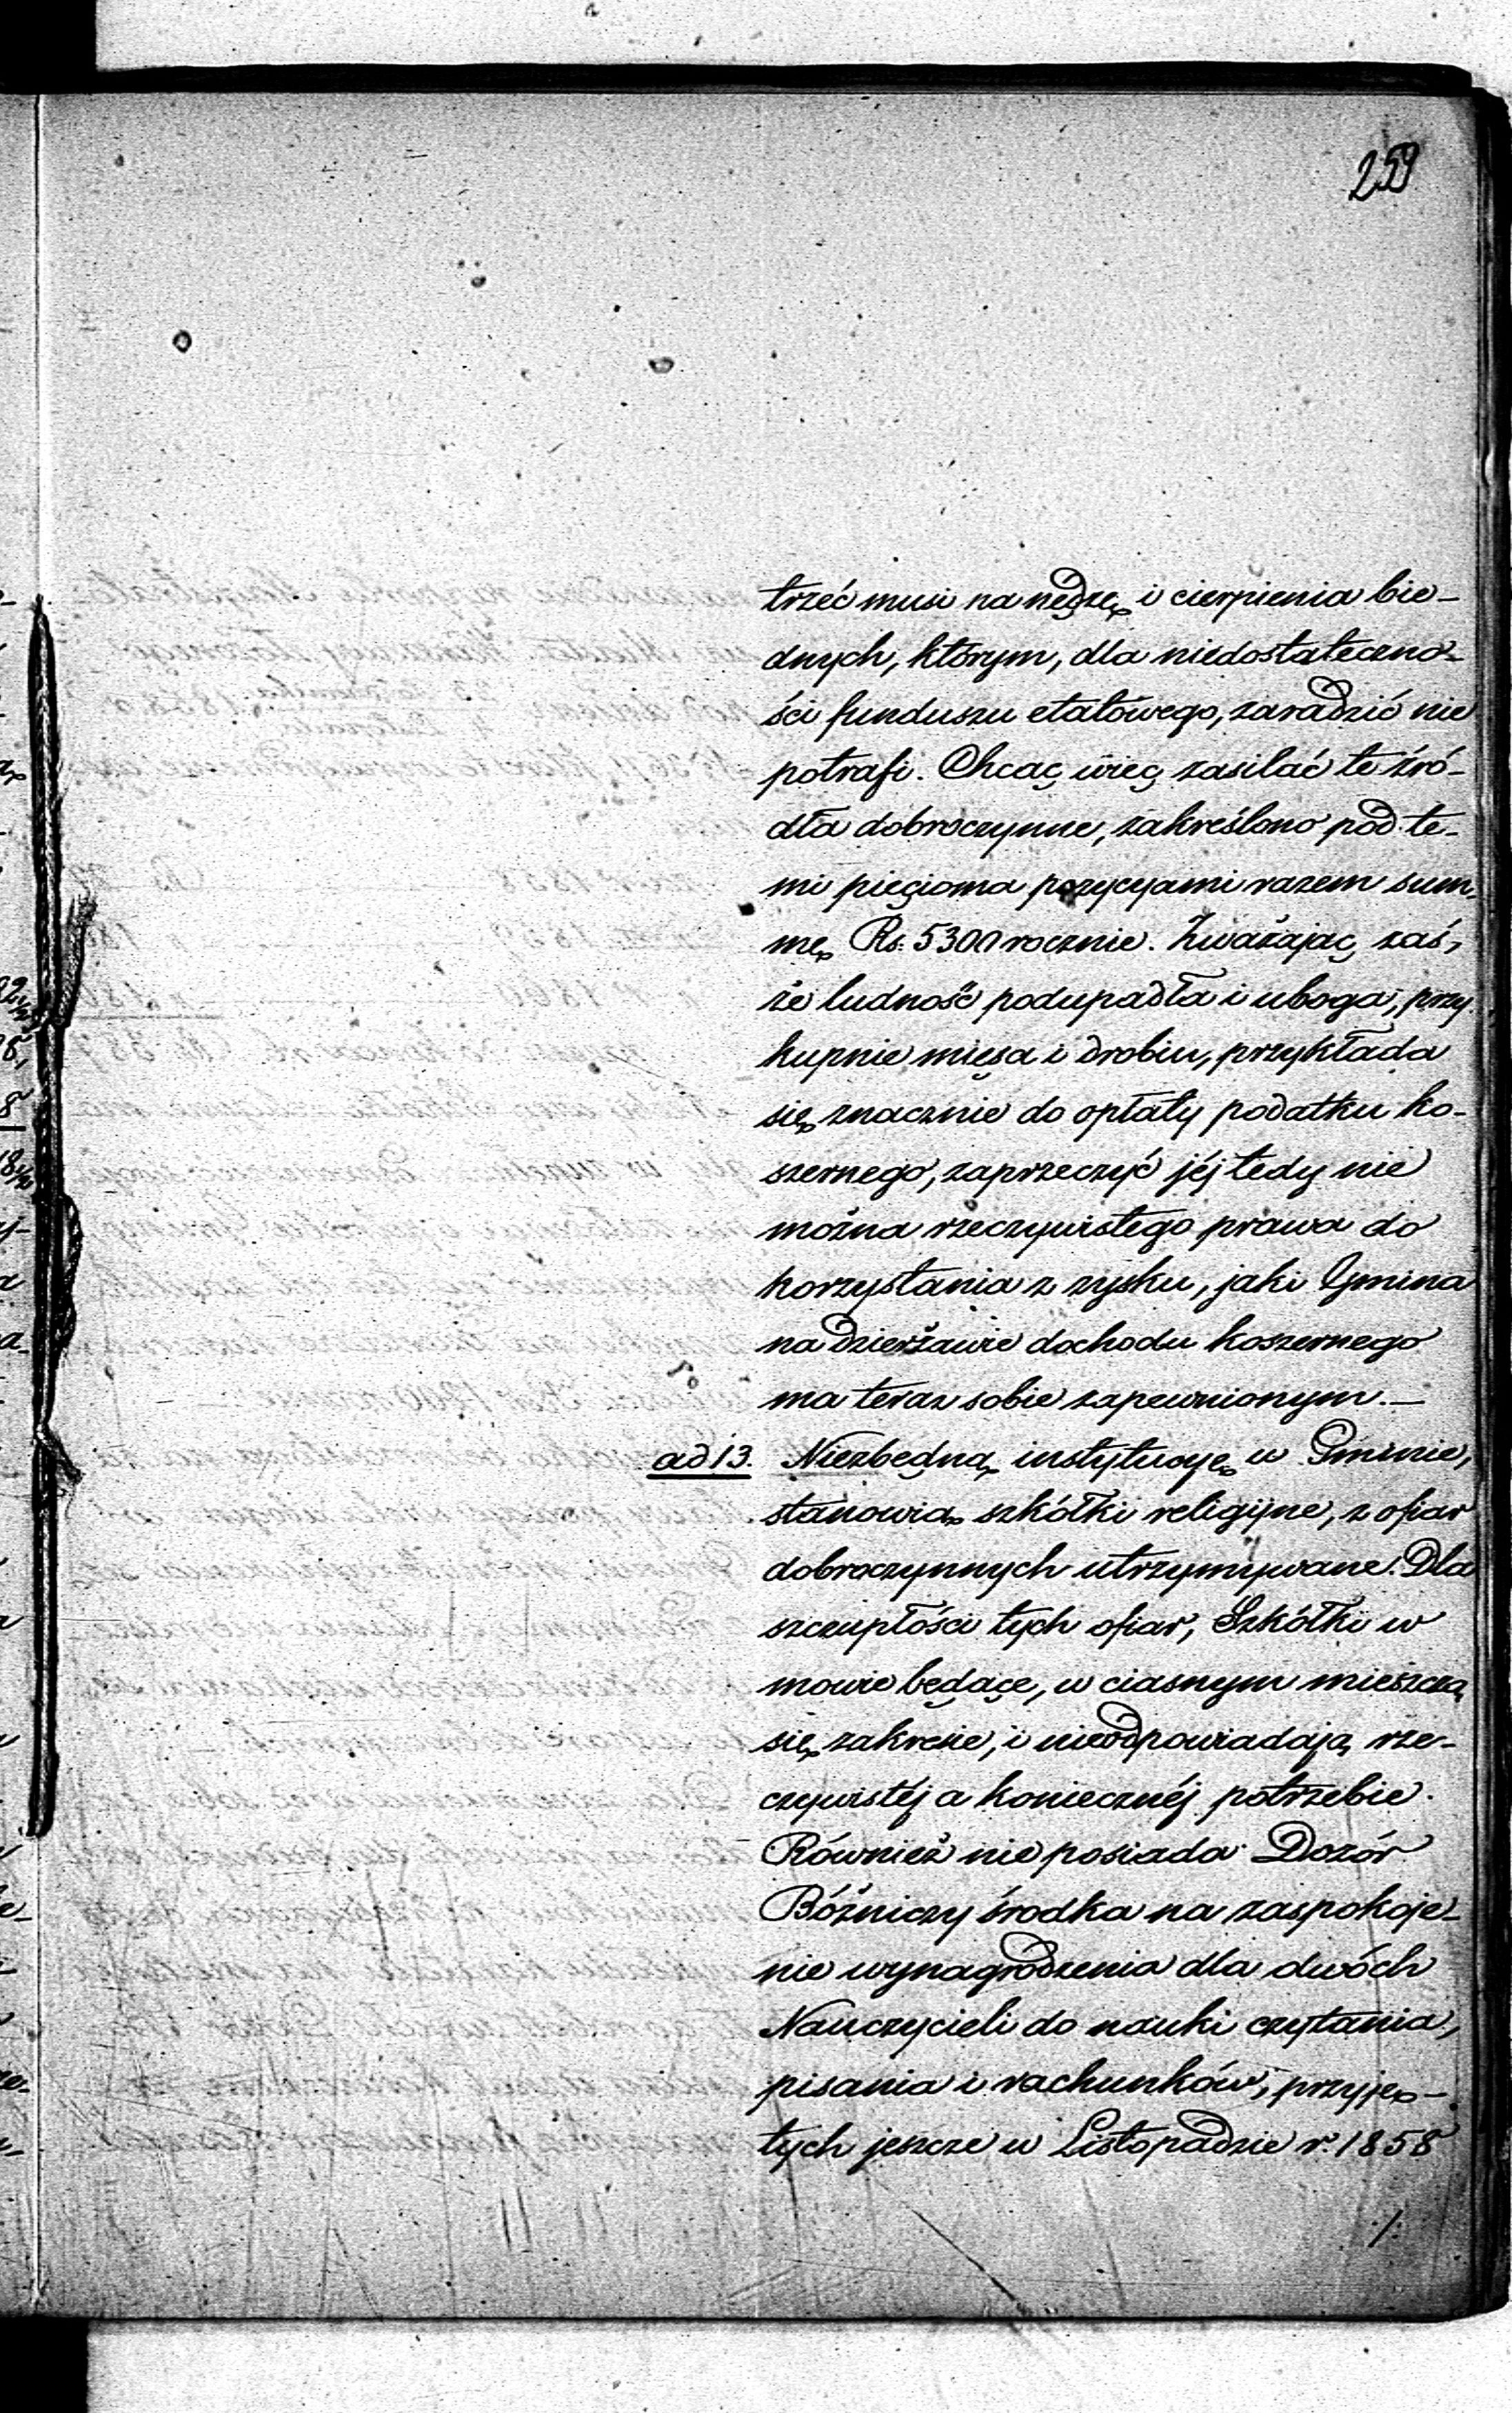 259
trzeć musi na nędzę i cierpienia bie-
dnych, którym, dla niedostateczno-
ści funduszu etatowego, zaradzić nie
potrafi. Chcąc więc zasilać te źró-
dła dobroczynne, zakreślono pod te-
mi pięcioma pozycyami razem sum-
mę Rs. 5300 rocznie. Zważając zaś,
że ludność podupadła i uboga, przy
kupnie mięsa i drobiu, przykłada
się znacznie do opłaty podatku ko-
szernego, zaprzeczyć jéj tedy nie
można rzeczywistego prawa do
korzystania z zysku, jaki Gmina
na dzierżawie dochodu koszernego
ma teraz sobie zapewnionym.—
ad 13. Niezbędną instytucyę w Gminie,
stanowią szkółki religijne, z ofiar
dobroczynnych utrzymywane. Dla
szczupłości tych ofiar, Szkółki w
mowie będące, w ciasnym mieszczą
się zakresie, i nieodpowiadają rze-
czywistéj a koniecznéj potrzebie.
Również nie posiada Dozór
Bóżniczy środka na zaspokoje-
nie wynagrodzenia dla dwóch
Nauczycieli do nauki czytania,
pisania i rachunków, przyję-
tych jeszcze w Listopadzie r. 1858
./.